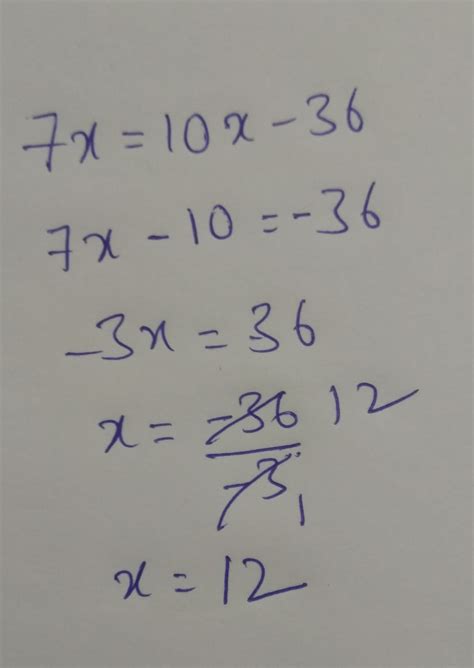 7x = 10x - 36
7x - 10 = -36
-3x = 36
x = -36/-3 12 1
x = 12